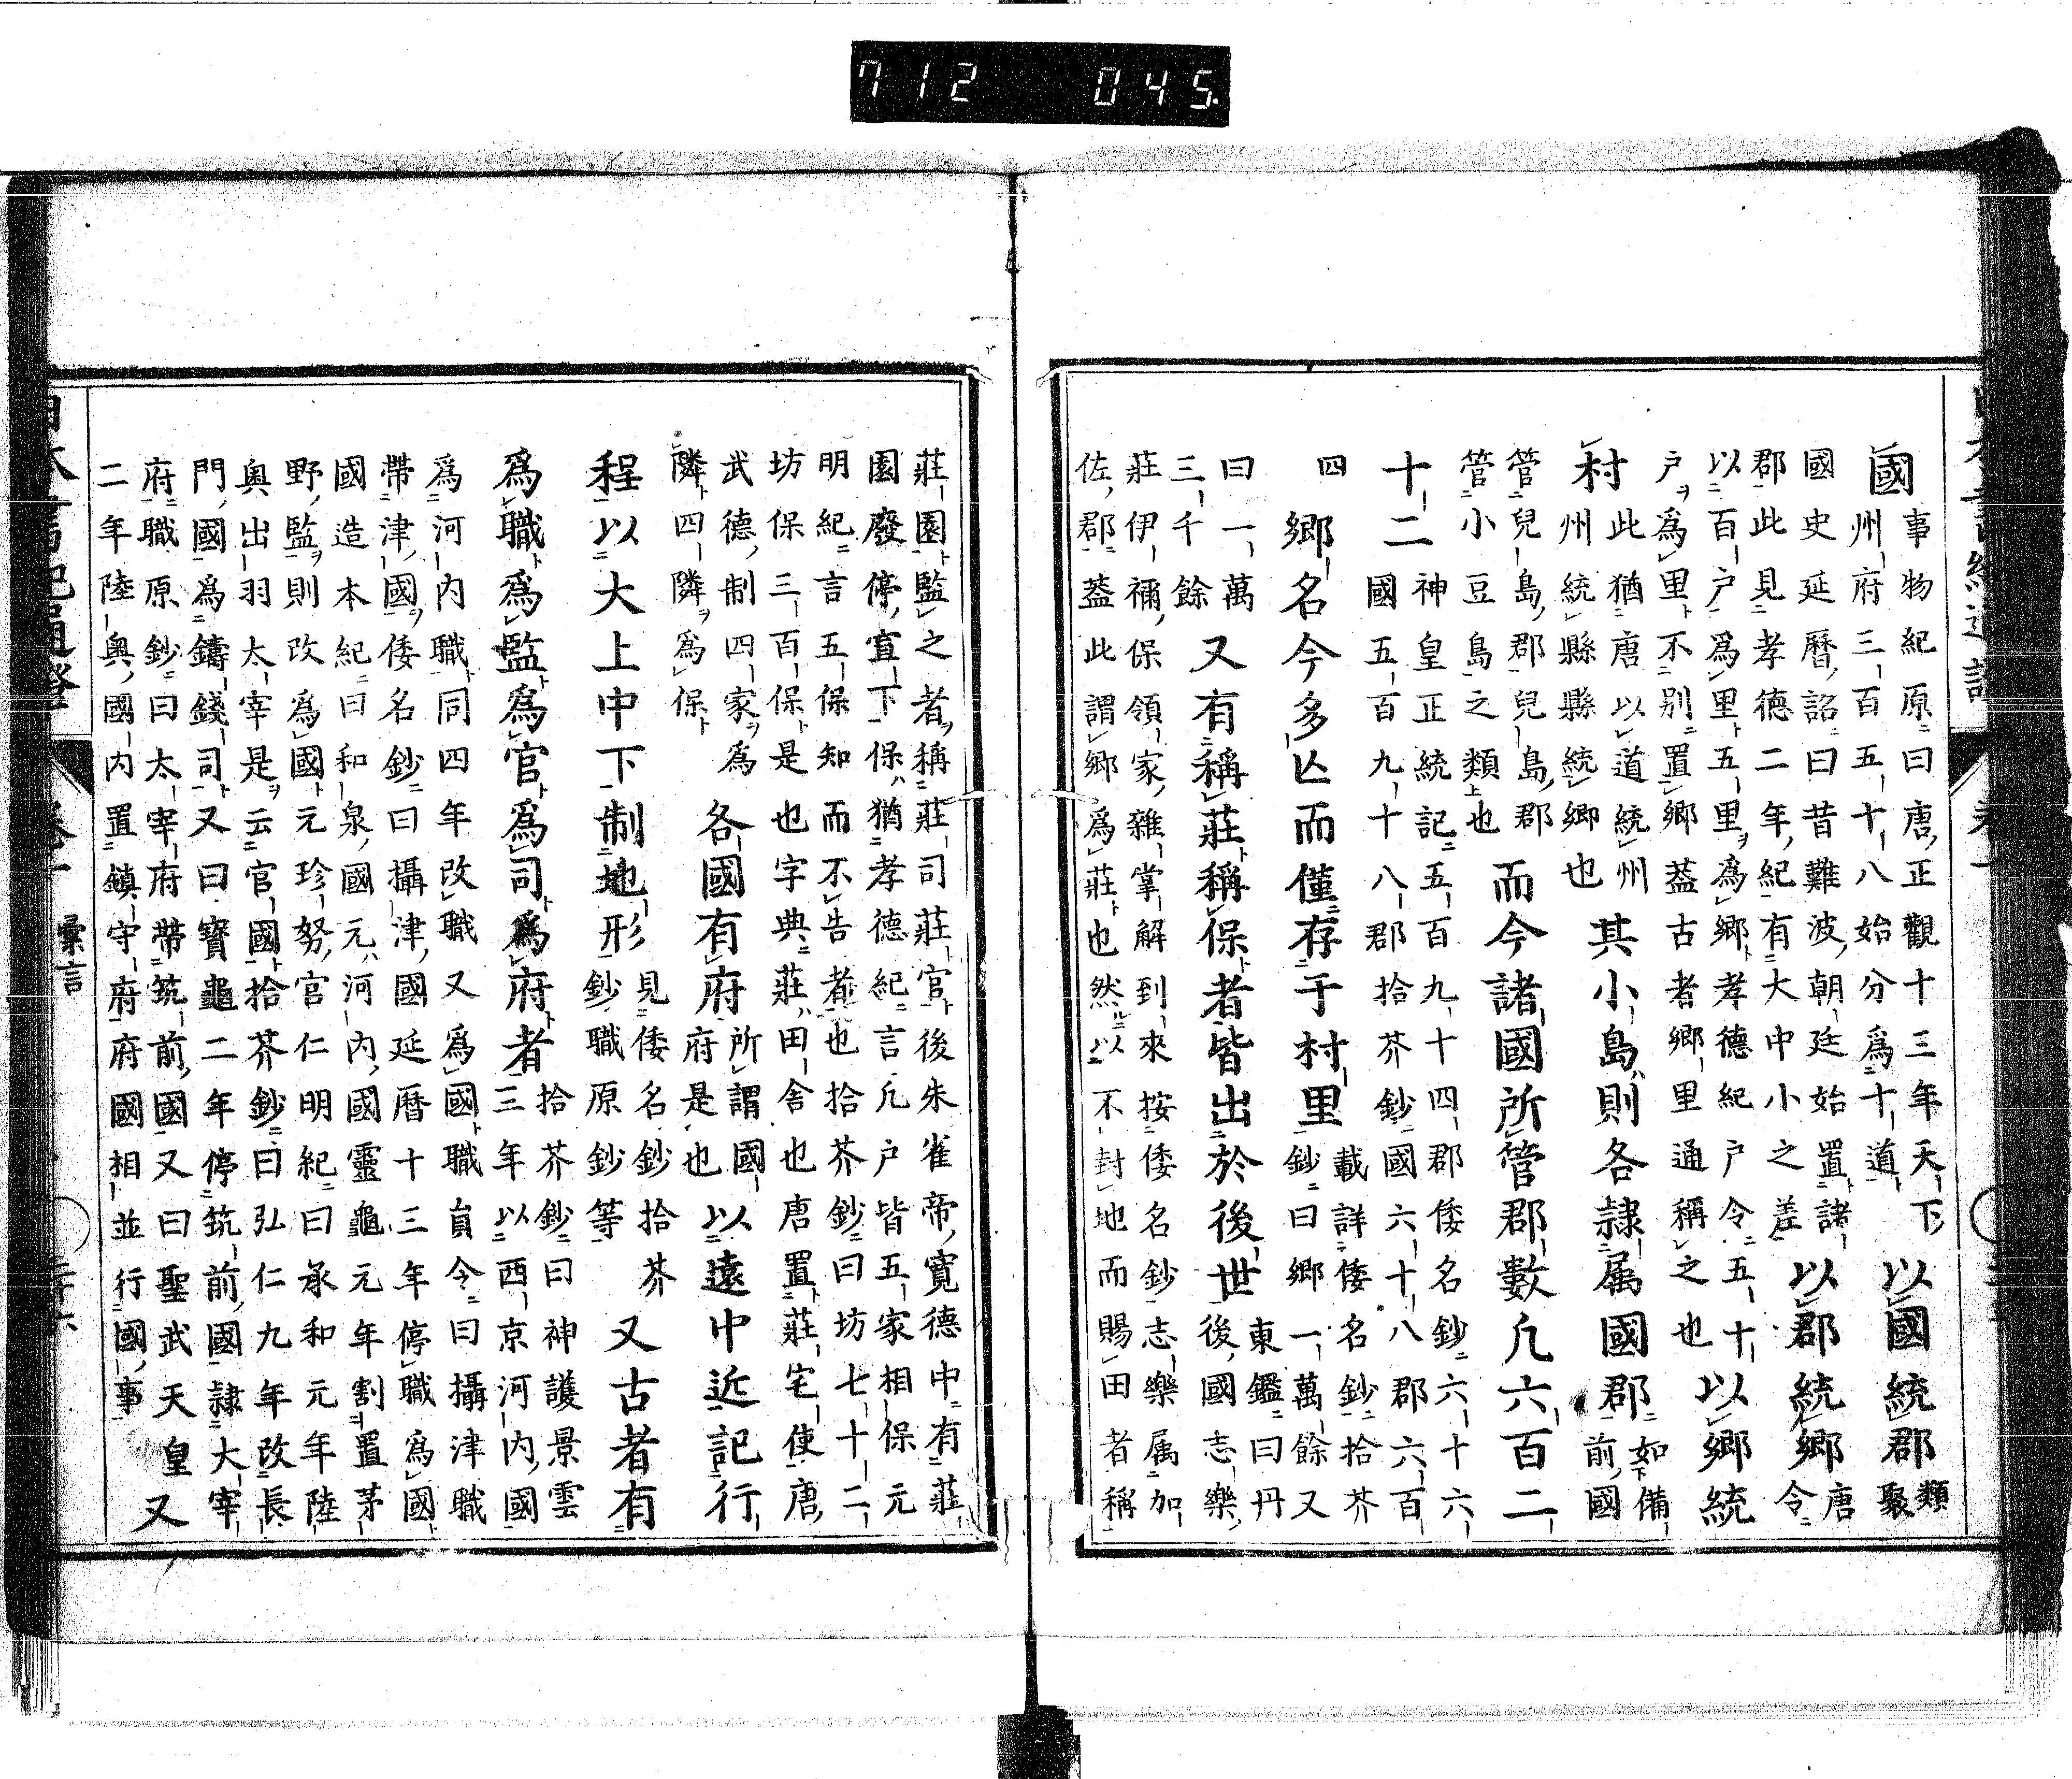 國
事物紀原曰唐正觀十三年天下
州府三百五十八始分爲十道
以國統郡
類聚
國史延暦詔曰昔難波朝廷始置諸
郡此見孝德二年紀有大中小之差
以郡統郷
唐令
以百户爲里五里爲郷孝德紀户令五十
户爲里不別置郷葢古者郷里通稱之也
以郷統
村
此猶唐以道統州
州統縣縣統郷也
其小島則各隷属國郡
如備前國
管兒島郡兒島郡
管小豆島之類也
而今諸國所管郡數凢六百二
十二
神皇正統記五百九十四郡倭名鈔六十六
國五百九十八郡拾芥鈔國六十八郡六百
四
郷名今多亾而僅存于村里
載詳倭名鈔拾芥
鈔曰郷一萬餘又
曰一萬
三千餘
又有稱莊稱保者皆出於後世
東鑑曰丹
後國志樂
莊伊禰保領家雜掌解到來按倭名鈔志樂属加
佐郡葢此謂郷爲莊也然以不封地而賜田者稱
莊園監之者稱莊司莊官後朱雀帝寛德中有莊
園廢停宜下保猶孝德紀言凢户皆五家相保元
明紀言五保知而不告者也拾芥鈔曰坊七十二
坊保三百保是也字典莊田舍也唐置莊宅使唐
武德制四家爲
隣四隣爲保
各國有府
所謂國
府是也
以遠中近記行
程以大上中下制地形
見倭名鈔拾芥
鈔職原鈔等
又古者有
爲職爲監爲官爲司爲府者
拾芥鈔曰神護景雲
三年以西京河内國
爲河内職同四年改職又爲國職員令曰攝津職
帶津國倭名鈔曰攝津國延暦十三年停職爲國
國造本紀曰和泉國元河内國靈龜元年割置茅
野監則改爲國元珍努官仁明紀曰承和元年陸
奥出羽太宰是云官國拾芥鈔曰弘仁九年改長
門國爲鑄錢司又曰寳龜二年停筑前國隷大宰
府職原鈔曰太宰府帶筑前國又曰聖武天皇
二年陸奥國内置鎮守府府國相並行國事
又
日本書紀通證 卷一 彙言
712 045.